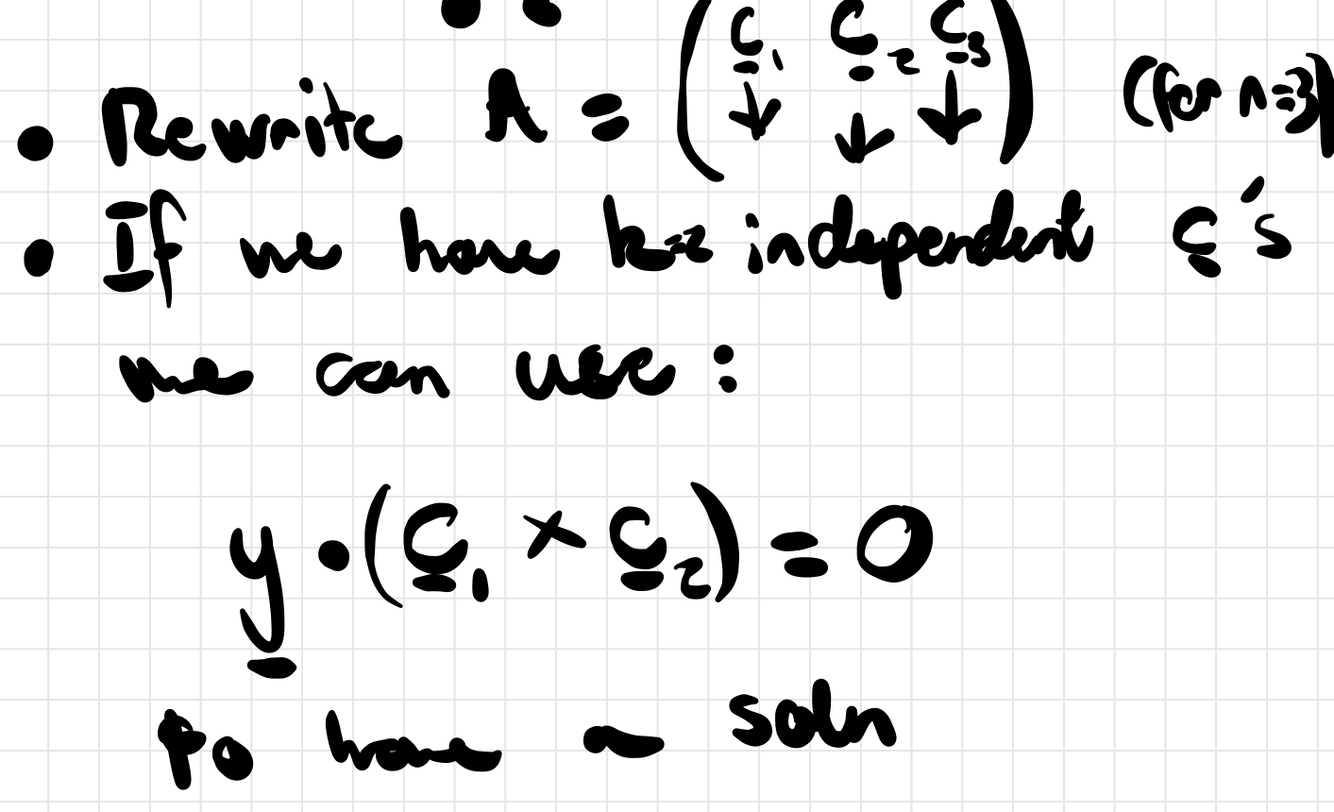 • Rewrite A = (c₁ c₂ c₃) (for n=3)
↓ ↓ ↓
• If we have k=2 independent c's
we can use:
y · (c₁ × c₂) = 0
to have a soln